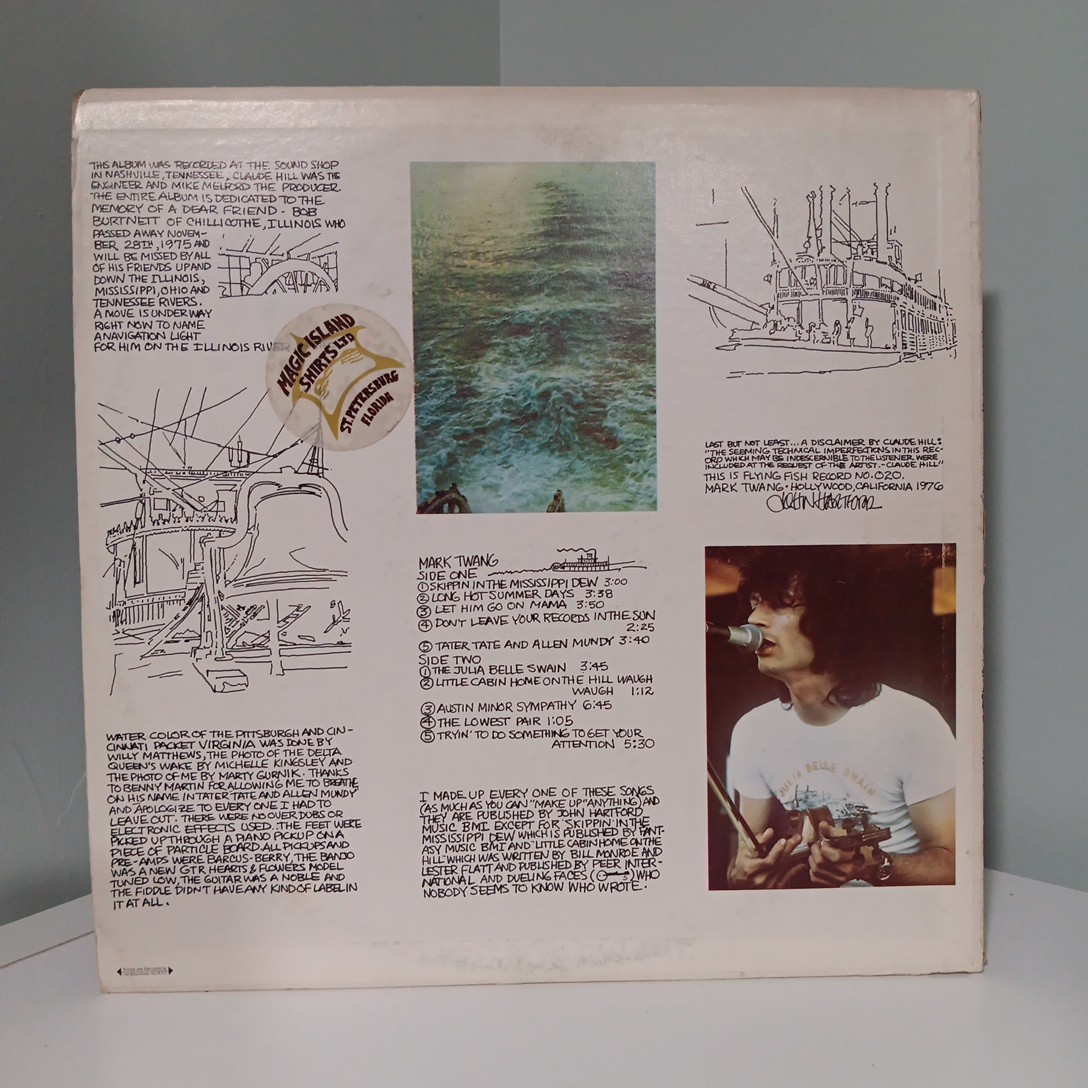 THIS ALBUM WAS RECORDED AT THE SOUND SHOP
IN NASHVILLE, TENNESSEE, CLAUDE HILL WAS THE
ENGINEER AND MIKE MELFORD THE PRODUCER.
THE ENTIRE ALBUM IS DEDICATED TO THE
MEMORY OF A DEAR FRIEND - BOB
BURTNETT OF CHILLICOTHE, ILLINOIS WHO
PASSED AWAY NOVEM-
BER 28TH, 1975 AND
WILL BE MISSED BY ALL
OF HIS FRIENDS UP AND
DOWN THE ILLINOIS,
MISSISSIPPI, OHIO AND
TENNESSEE RIVERS.
A MOVE IS UNDER WAY
RIGHT NOW TO NAME
A NAVIGATION LIGHT
FOR HIM ON THE ILLINOIS RIVER
MAGIC ISLAND
SHIRTS LTD
ST. PETERSBURG
FLORIDA
WATER COLOR OF THE PITTSBURGH AND CIN-
CINNATI PACKET VIRGINIA WAS DONE BY
WILLY MATTHEWS, THE PHOTO OF THE DELTA
QUEEN'S WAKE BY MICHELLE KINGSLEY AND
THE PHOTO OF ME BY MARTY GURNIK. THANKS
TO BENNY MARTIN FOR ALLOWING ME TO BREATHE
ON HIS NAME IN TATER TATE AND ALLEN MUNDY
AND APOLOGIZE TO EVERY ONE I HAD TO
LEAVE OUT. THERE WERE NO OVER DUBS OR
ELECTRONIC EFFECTS USED. THE FEET WERE
PICKED UP THROUGH A PIANO PICKUP ON A
PIECE OF PARTICLE BOARD. ALL PICKUPS AND
PRE-AMPS WERE BARCUS-BERRY, THE BANJO
WAS A NEW GTR HEARTS & FLOWERS MODEL
TUNED LOW, THE GUITAR WAS A NOBLE AND
THE FIDDLE DIDN'T HAVE ANY KIND OF LABEL IN
IT AT ALL.
MARK TWANG
SIDE ONE
① SKIPPIN IN THE MISSISSIPPI DEW 3:00
② LONG HOT SUMMER DAYS 3:38
③ LET HIM GO ON MAMA 3:50
④ DON'T LEAVE YOUR RECORDS IN THE SUN
2:25
⑤ TATER TATE AND ALLEN MUNDY 3:40
SIDE TWO
① THE JULIA BELLE SWAIN 3:45
② LITTLE CABIN HOME ON THE HILL WAUGH
WAUGH 1:12
③ AUSTIN MINOR SYMPATHY 6:45
④ THE LOWEST PAIR 1:05
⑤ TRYIN' TO DO SOMETHING TO GET YOUR
ATTENTION 5:30
I MADE UP EVERY ONE OF THESE SONGS
(AS MUCH AS YOU CAN "MAKE UP" ANYTHING) AND
THEY ARE PUBLISHED BY JOHN HARTFORD
MUSIC BMI EXCEPT FOR 'SKIPPIN' IN THE
MISSISSIPPI DEW WHICH IS PUBLISHED BY FANT-
ASY MUSIC BMI AND "LITTLE CABIN HOME ON THE
HILL" WHICH WAS WRITTEN BY BILL MONROE AND
LESTER FLATT AND PUBLISHED BY PEER INTER-
NATIONAL AND DUELING FACES ( S) WHO
NOBODY SEEMS TO KNOW WHO WROTE.
LAST BUT NOT LEAST... A DISCLAIMER BY CLAUDE HILL:
"THE SEEMING TECHNICAL IMPERFECTIONS IN THIS REC-
ORD WHICH MAY BE INDESCERNIBLE TO THE LISTENER WERE
INCLUDED AT THE REQUEST OF THE ARTIST. - CLAUDE HILL"
THIS IS FLYING FISH RECORD NO. 020.
MARK TWANG • HOLLYWOOD, CALIFORNIA 1976
JOHN HARTFORD
JULIA BELLE SWAIN